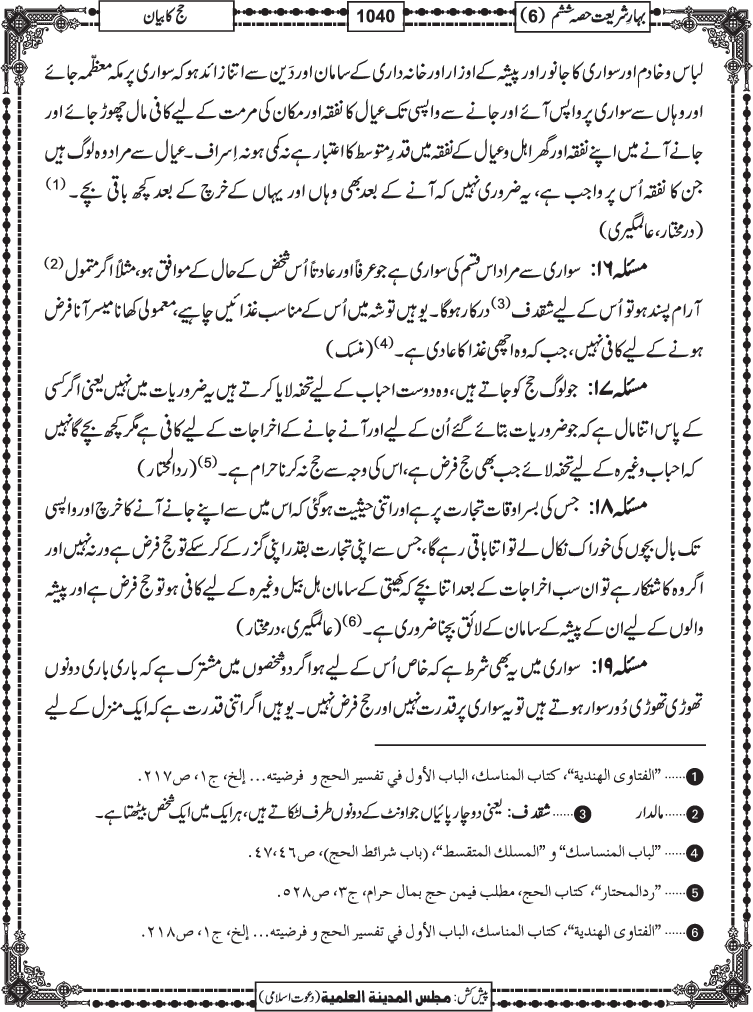 بہارِ شریعت حصہ ششم (6)
1040
حج کا بیان
لباس و خادم اور سواری کا جانور اور پیشہ کے اوزار اور خانہ داری کے سامان اور دَین سے اتنا زائد ہو کہ سواری پر مکہ معظّمہ جائے
اور وہاں سے سواری پر واپس آئے اور جانے سے واپسی تک عیال کا نفقہ اور مکان کی مرمت کے لیے کافی مال چھوڑ جائے اور
جانے آنے میں اپنے نفقہ اور گھر اہل و عیال کے نفقہ میں قدرِ متوسط کا اعتبار ہے نہ کمی ہو نہ اِسراف۔ عیال سے مراد وہ لوگ ہیں
جن کا نفقہ اُس پر واجب ہے، یہ ضروری نہیں کہ آنے کے بعد بھی وہاں اور یہاں کے خرچ کے بعد کچھ باقی بچے۔ (1)
(درمختار، عالمگیری)
مسئلہ ۱۶: سواری سے مراد اس قسم کی سواری ہے جو عرفاً اور عادتاً اُس شخص کے حال کے موافق ہو، مثلاً اگر متمول (2)
آرام پسند ہو تو اُس کے لیے شقدف (3) درکار ہوگا۔ یوہیں توشہ میں اُس کے مناسب غذائیں چاہیے، معمولی کھانا میسر آنا فرض
ہونے کے لیے کافی نہیں، جب کہ وہ اچھی غذا کا عادی ہے۔ (4) (منسک)
مسئلہ ۱۷: جو لوگ حج کو جاتے ہیں، وہ دوست احباب کے لیے تحفہ لایا کرتے ہیں یہ ضروریات میں نہیں یعنی اگر کسی
کے پاس اتنا مال ہے کہ جو ضروریات بتائے گئے اُن کے لیے اور آنے جانے کے اخراجات کے لیے کافی ہے مگر کچھ بچے گا نہیں
کہ احباب وغیرہ کے لیے تحفہ لائے جب بھی حج فرض ہے، اس کی وجہ سے حج نہ کرنا حرام ہے۔ (5) (ردالمحتار)
مسئلہ ۱۸: جس کی بسر اوقات تجارت پر ہے اور اتنی حیثیت ہو گئی کہ اس میں سے اپنے جانے آنے کا خرچ اور واپسی
تک بال بچوں کی خوراک نکال لے تو اتنا باقی رہے گا، جس سے اپنی تجارت بقدر اپنی گزر کے کر سکے تو حج فرض ہے ورنہ نہیں اور
اگر وہ کاشتکار ہے تو ان سب اخراجات کے بعد اتنا بچے کہ کھیتی کے سامان ہل بیل وغیرہ کے لیے کافی ہو تو حج فرض ہے اور پیشہ
والوں کے لیے ان کے پیشہ کے سامان کے لائق بچنا ضروری ہے۔ (6) (عالمگیری، درمختار)
مسئلہ ۱۹: سواری میں یہ بھی شرط ہے کہ خاص اُس کے لیے ہو اگر دو شخصوں میں مشترک ہے کہ باری باری دونوں
تھوڑی تھوڑی دُور سوار ہوتے ہیں تو یہ سواری پر قدرت نہیں اور حج فرض نہیں۔ یوہیں اگر اتنی قدرت ہے کہ ایک منزل کے لیے
1 ...... ”الفتاوى الهندية“، كتاب المناسك، الباب الأول في تفسير الحج و فرضيته... إلخ، ج۱، ص۲۱۷.
2 ...... مالدار 3 ...... شقدف: یعنی دو چار پائیاں جو اونٹ کے دونوں طرف لٹکاتے ہیں، ہر ایک میں ایک شخص بیٹھتا ہے۔
4 ...... ”لباب المنساسك“ و ”المسلك المتقسط“، (باب شرائط الحج)، ص۴۷،۴۶.
5 ...... ”ردالمحتار“، كتاب الحج، مطلب فيمن حج بمال حرام، ج۳، ص۵۲۸.
6 ...... ”الفتاوى الهندية“، كتاب المناسك، الباب الأول في تفسير الحج و فرضيته... إلخ، ج۱، ص۲۱۸.
پیش کش: مجلس المدينة العلمية (دعوتِ اسلامی)